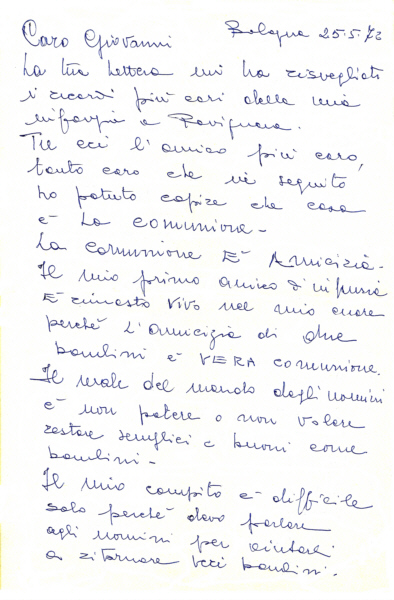 Caro Giovanni Bologna 25.5.72
La tua lettera mi ha risvegliato
i ricordi più cari della mia
infanzia a Ravignana.
Tu eri l'amico più caro,
tanto caro che in seguito
ho potuto capire che cosa
è la comunione -
La comunione È Amicizia -
Il mio primo amico d'infanzia
È rimasto vivo nel mio cuore
perchè L'amicizia di due
bambini è VERA comunione.
Il male del mondo degli uomini
è non potere o non volere
restare semplici e buoni come
bambini -
Il mio compito è difficile
solo perchè devo parlare
agli uomini per aiutarli
a ritornare veri bambini.